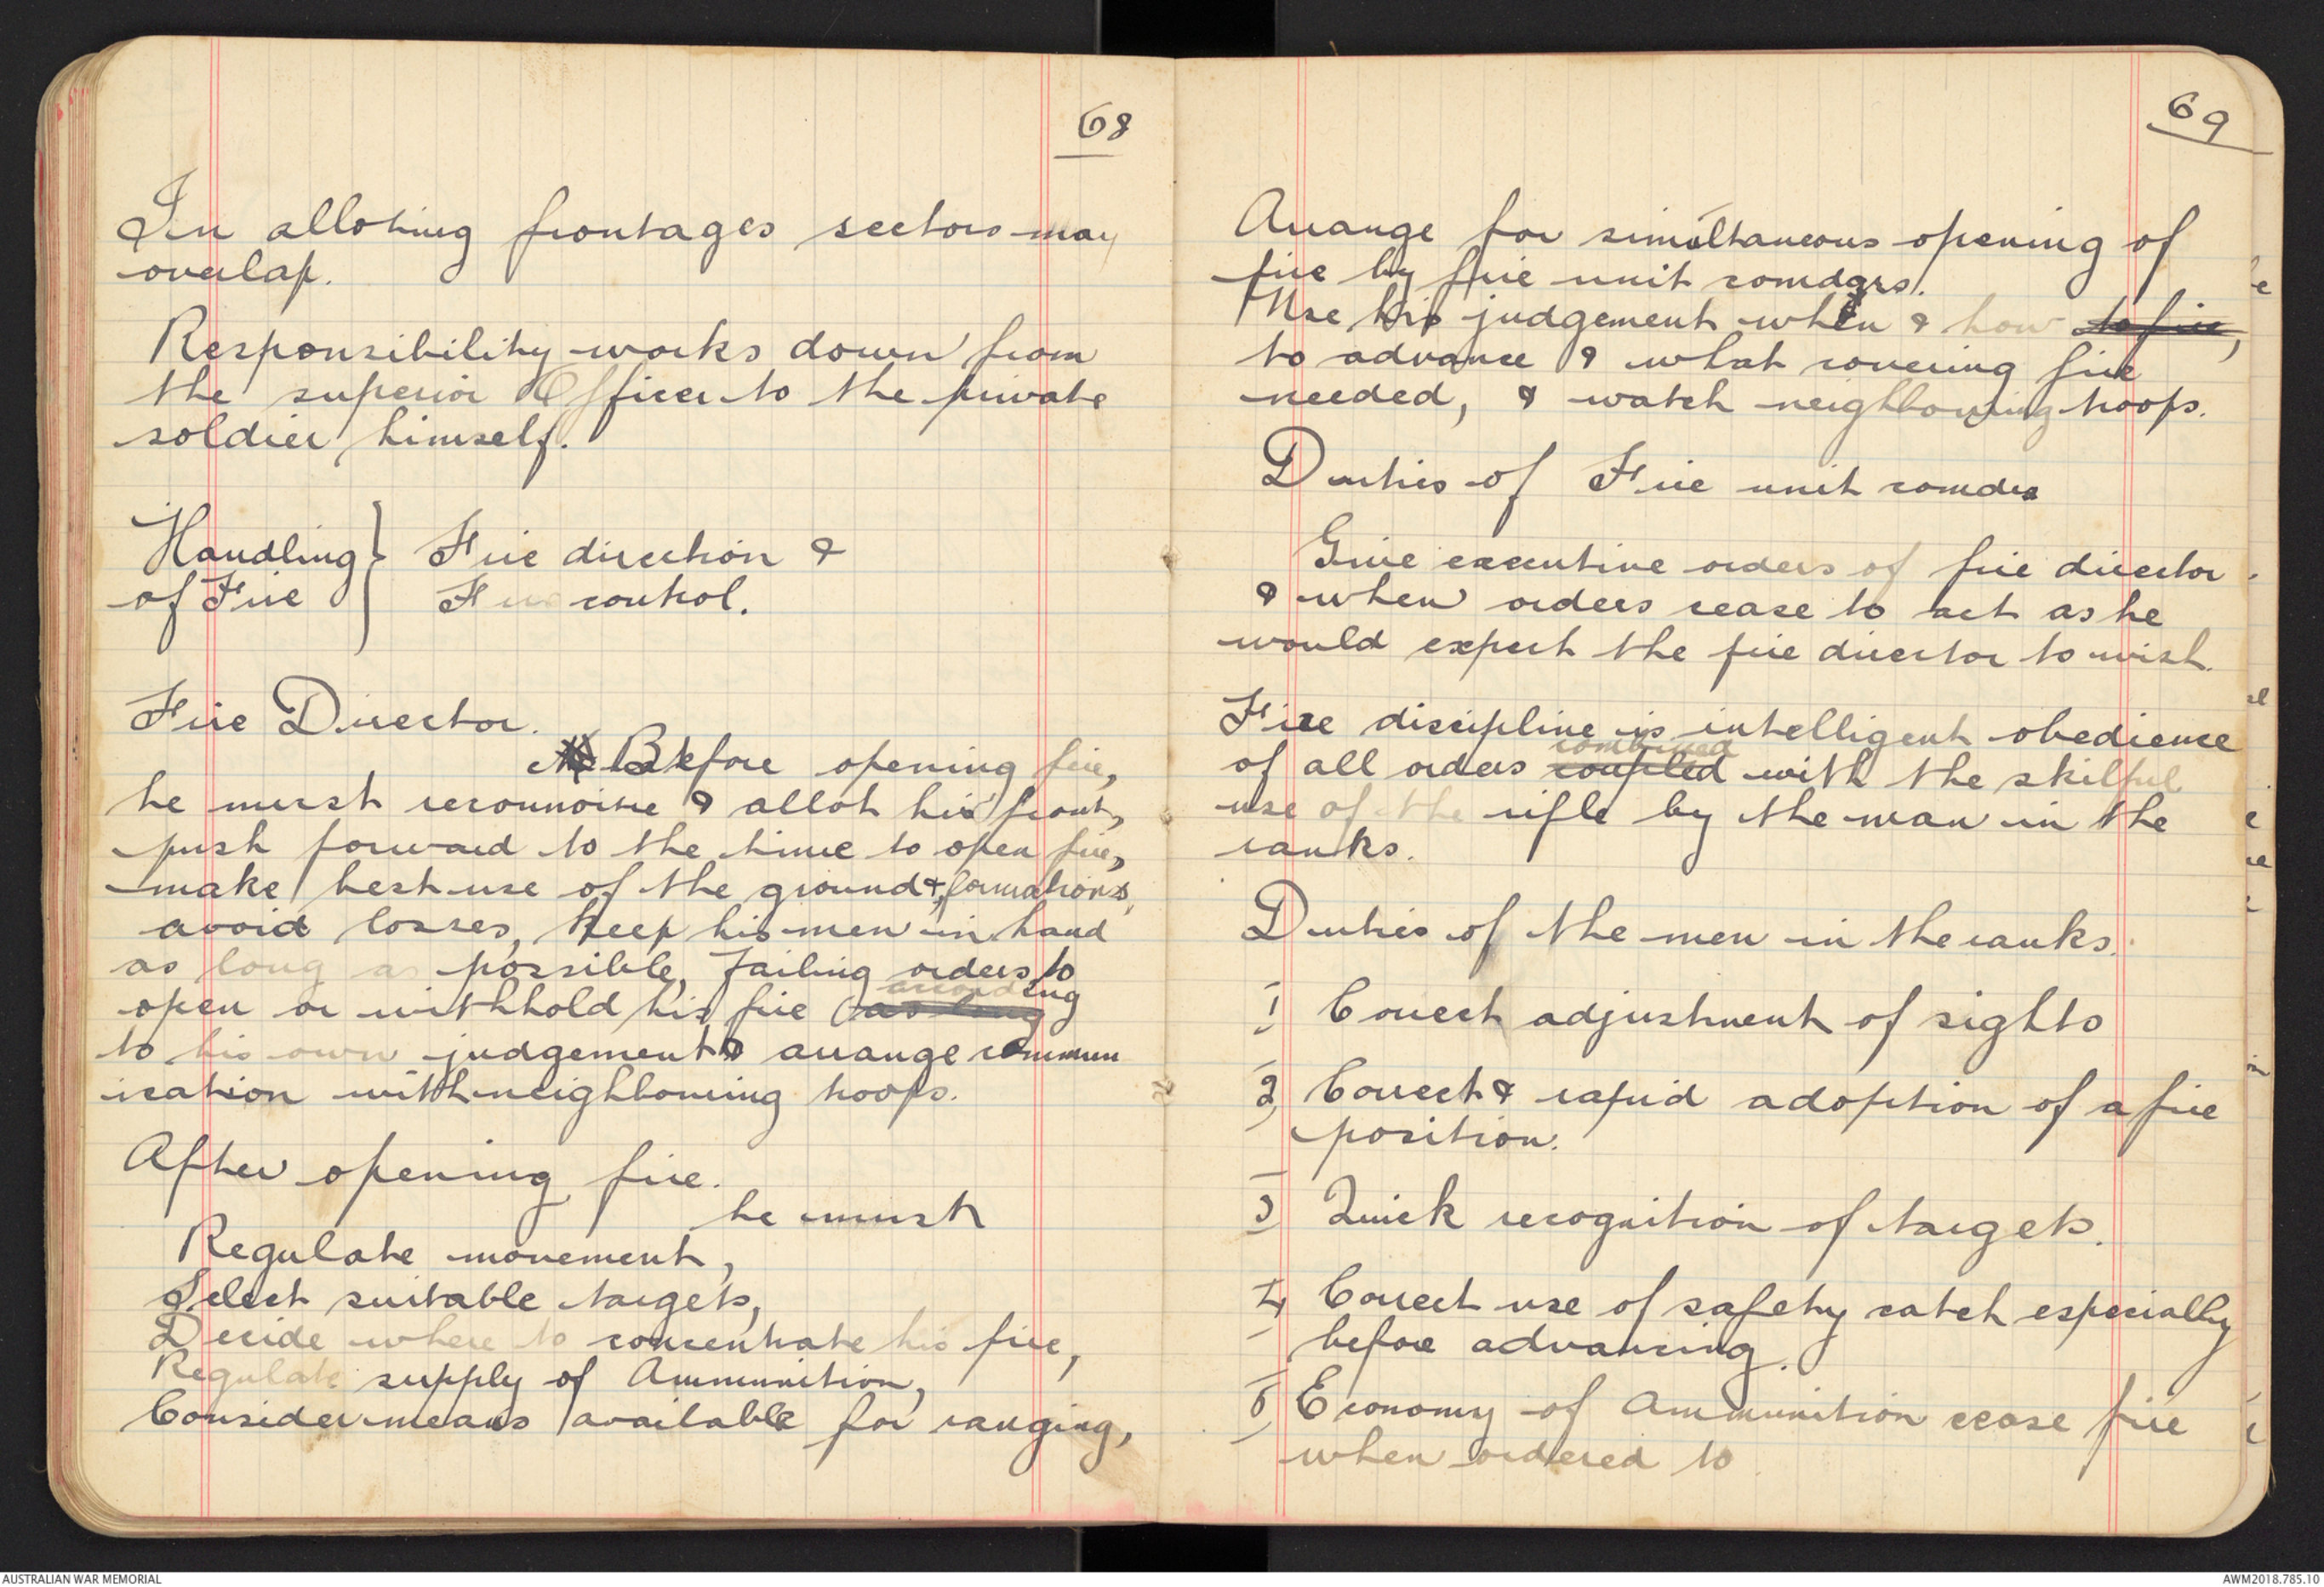 68
In alloting frontages sectors may
overlap.
Responsibility works down from
the superior Officer to the private
soldier himself.
Handling } Fire direction &
of Fire } Fire control.
Fire Director.
Before opening fire,
he must reconnoitre & allot his front,
push forward to the time to open fire,
make best use of the ground & formations,
avoid losses, keep his men in hand
as long as possible, failing orders to
according
open or withhold his fire as long
to his own judgement & arrange commun
ication with neighbouring troops.
After opening fire.
he must
Regulate movement,
Select suitable targets,
Decide where to concentrate his fire,
Regulate supply of Ammunition,
Consider means available for ranging,
69
Arrange for simultaneous opening of
fire by fire unit comdgrs.
Use his judgement when & how to fire,
to advance & what covering fire
needed, & watch neighbouring troops.
Duties of Fire unit comdrs
Give executive orders of fire director
& when orders cease to act as he
would expect the fire director to wish.
Fire discipline is intelligent obedience
combined
of all orders coupled with the skilful
use of the rifle by the man in the
ranks.
Duties of the men in the ranks.
1 Correct adjustment of sights
2 Correct & rapid adoption of a fire
position.
3 Quick recognition of targets.
4 Correct use of safety catch especially
before advancing.
5 Economy of Ammunition cease fire
when ordered to
AUSTRALIAN WAR MEMORIAL
AWM2018.785.10